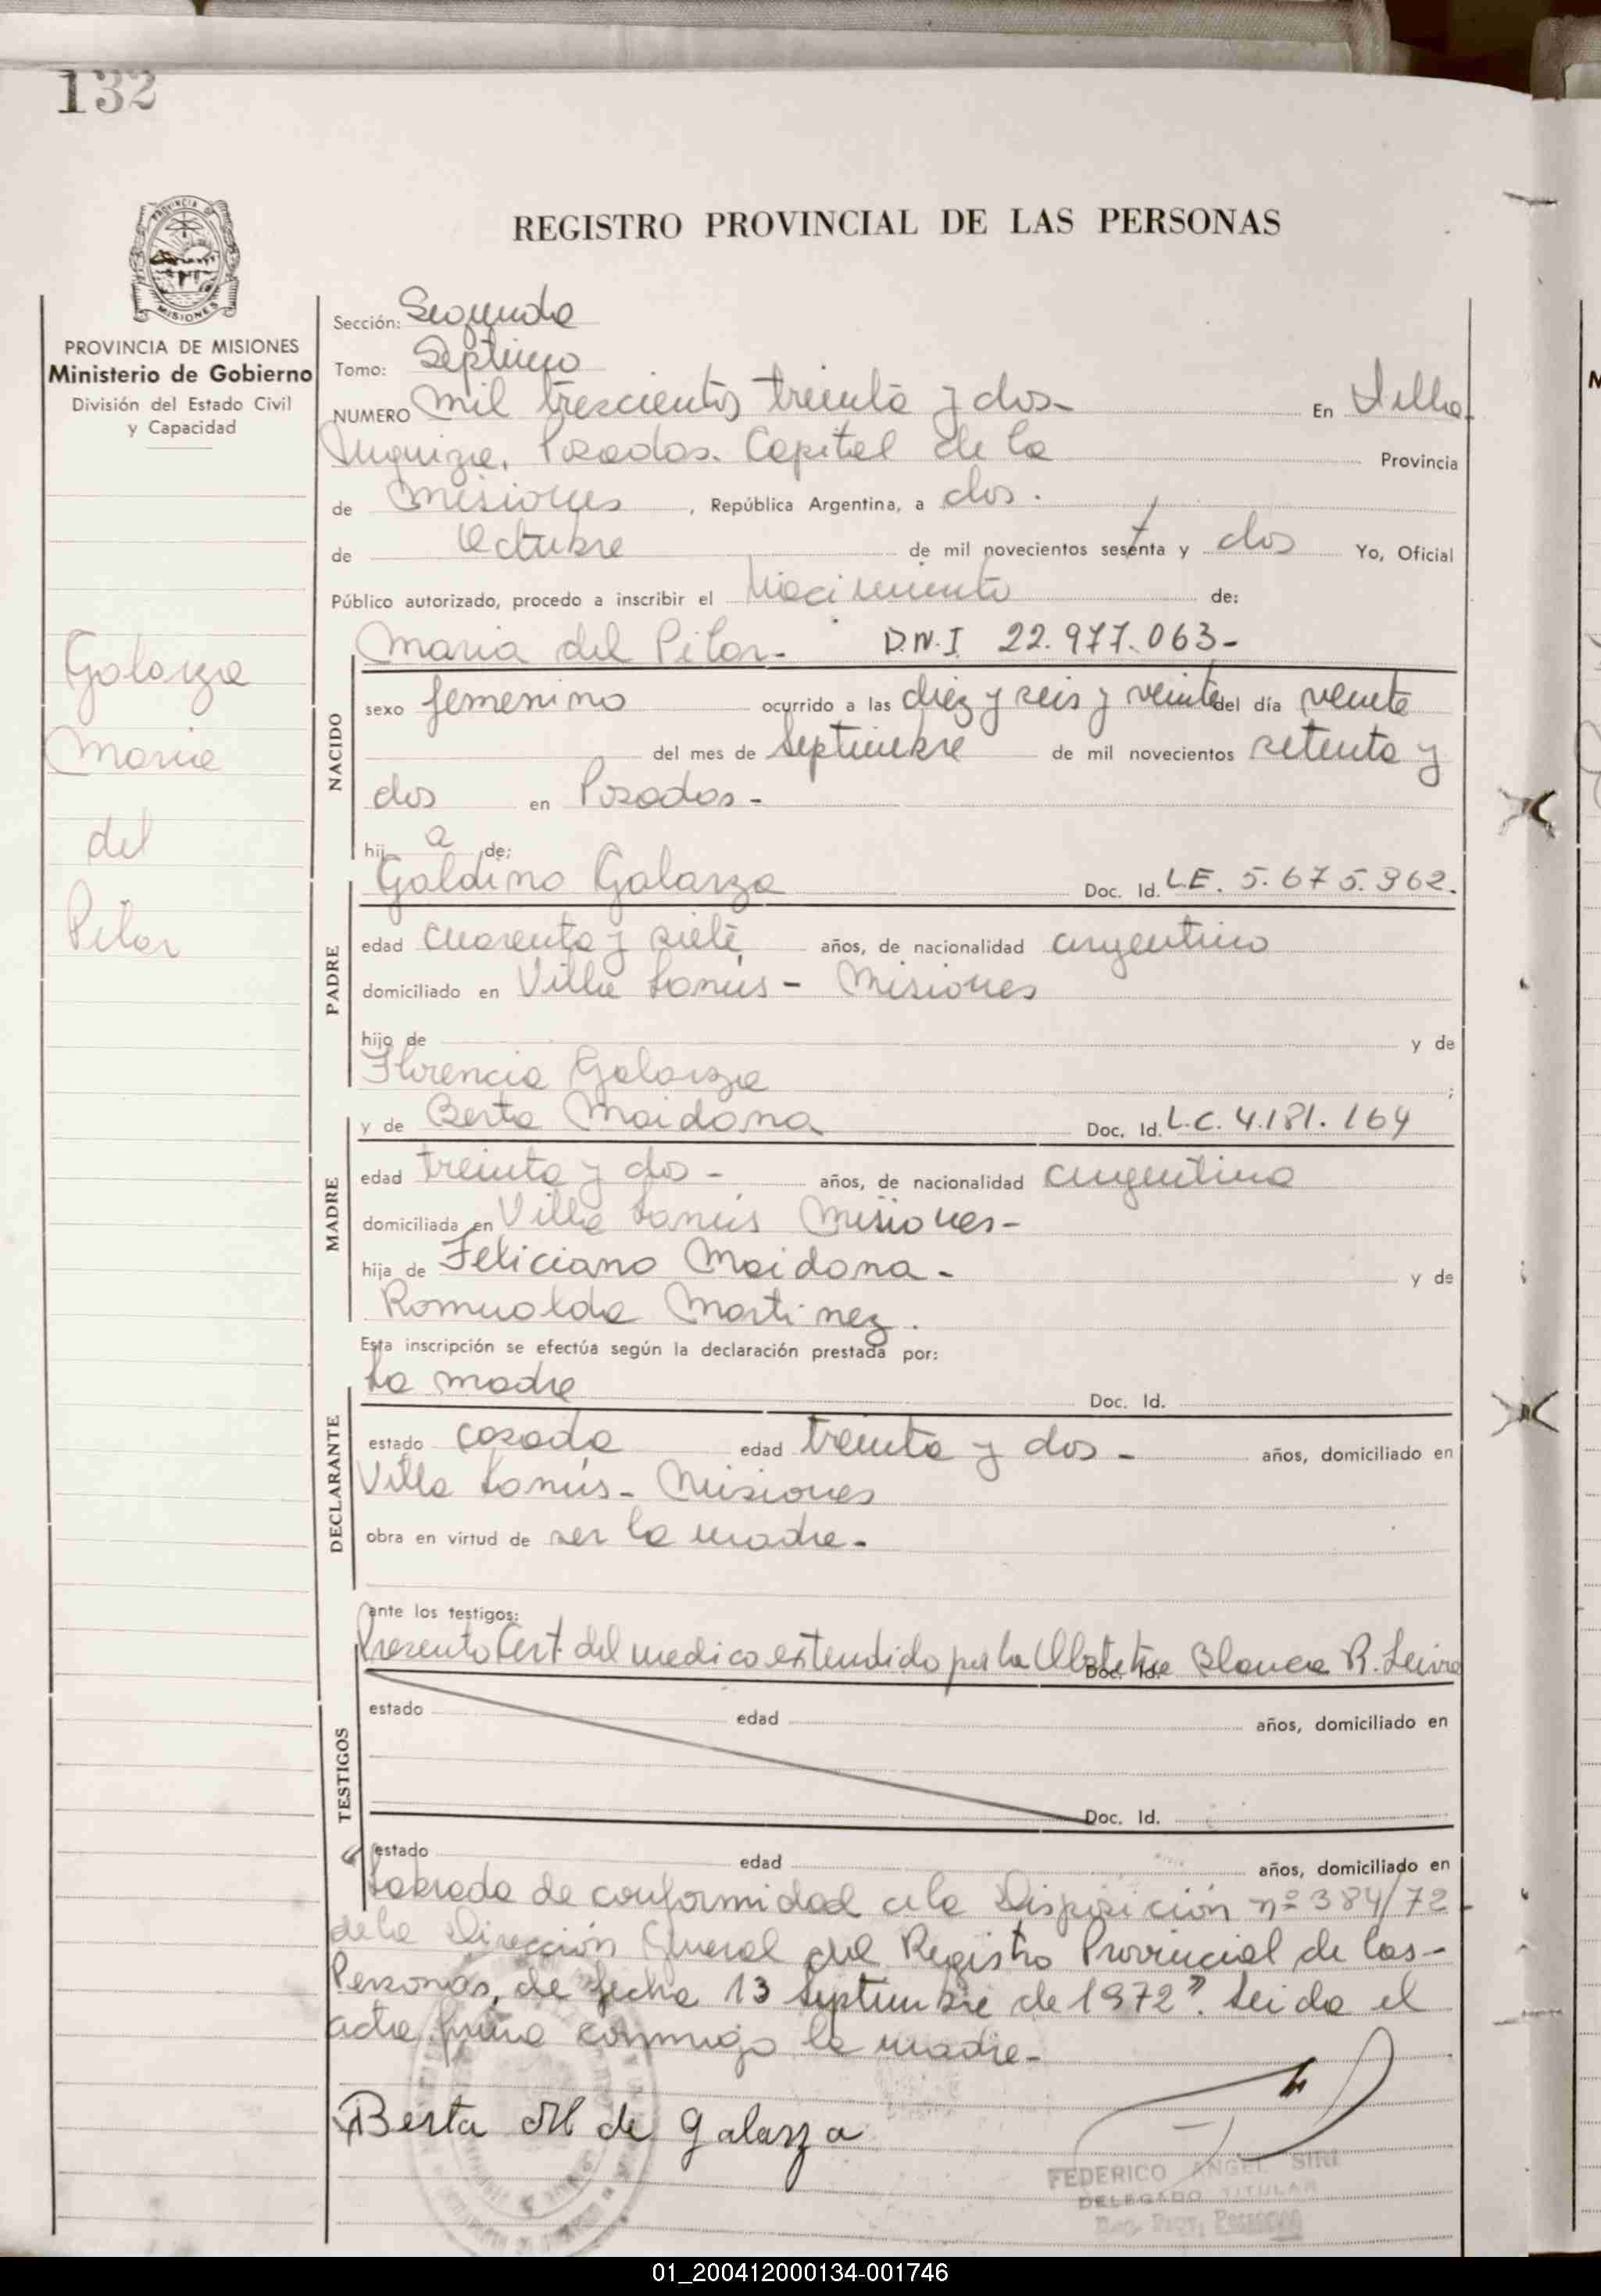 132
REGISTRO PROVINCIAL DE LAS PERSONAS
PROVINCIA DE
MISIONES
PROVINCIA DE MISIONES
Ministerio de Gobierno
División del Estado Civil
y Capacidad
Galarza
Maria
del
Pilar
Sección: Segunda
Tomo: Septimo
NUMERO mil trescientos treinta y dos - En Villa
Urquiza, Posadas. Capital de la Provincia
de Misiones, República Argentina, a dos.
de Octubre de mil novecientos sesenta y dos Yo, Oficial
Público autorizado, procedo a inscribir el Nacimiento de:
Maria del Pilar- D.N.I 22.977.063-
NACIDO
sexo femenino ocurrido a las diez y seis y veinte del día veinte
del mes de Septiembre de mil novecientos setenta y
dos en Posadas-
hij a de:
Galdino Galarza Doc. Id. L.E. 5.675.962.
PADRE
edad cuarenta y siete años, de nacionalidad argentino
domiciliado en Villa Lanús - Misiones
hijo de y de
Florencia Galarza ;
y de Berta Maidana Doc. Id. L.C. 4.181.164
MADRE
edad treinta y dos - años, de nacionalidad argentina
domiciliada en Villa Lanús Misiones-
hija de Feliciano Maidana - y de
Romualda Martinez.
Esta inscripción se efectúa según la declaración prestada por:
La madre Doc. Id.
DECLARANTE
estado casada edad treinta y dos - años, domiciliado en
Villa Lanús - Misiones
obra en virtud de ser la madre-
ante los testigos:
Presento Cert. del medico extendido por la Obstetra Blanca R. Leiva Doc. Id.
TESTIGOS
estado edad años, domiciliado en
Doc. Id.
estado edad años, domiciliado en
"Labrada de conformidad a la Disposición nº 384/72
de la Dirección General del Registro Provincial de las-
Personas, de fecha 13 Septiembre de 1972". Leida el
acta firma conmigo la madre-
Berta M de Galarza
FEDERICO ANGEL SIRI
DELEGADO TITULAR
01_200412000134-001746